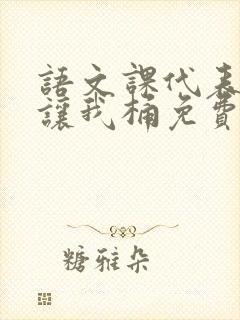 語文課代表
讓我桶免費
糖雅朵